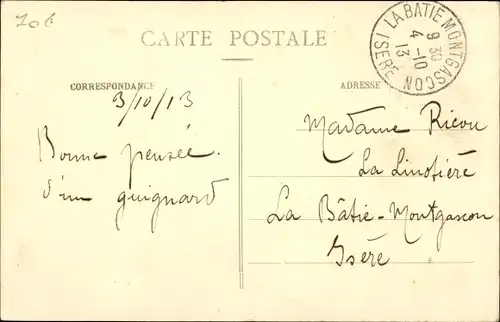 CARTE POSTALE
CORRESPONDANCE
3/10/13
Bonne pensée.
d'un guignard
ADRESSE
LA BATIE MONTGASCON
9 30
4 -10
13
ISERE
Madame Ricou
La Linotière
La Bâtie-Montgascon
Isère